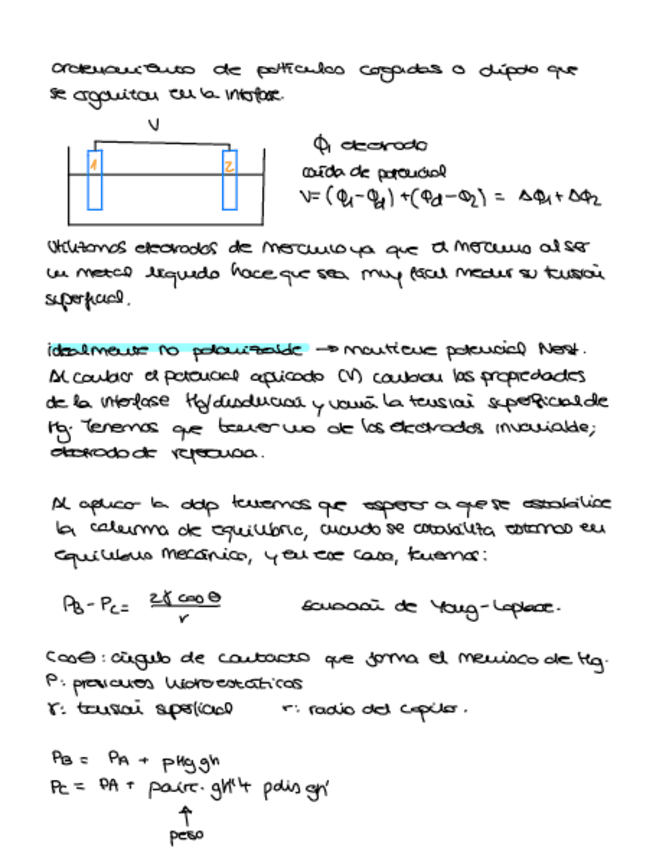 ordenamiento de partículas cargadas o dipolo que
se organitan en la interfase.
V
1
2
ϕ1 electrodo
caída de potencial
V= (ϕ1-ϕd) + (ϕd-ϕ2) = Δϕ1 + Δϕ2
Utilizamos electrodos de mercurio ya que el mercurio al ser
un metal líquido hace que sea muy fácil medir su tensión
superficial.
idealmente no polarizable → mantiene potencial Nest.
Al cambiar el potencial aplicado (V) cambian las propiedades
de la interfase Hg/disolución y varía la tensión superficial de
Hg. Tenemos que tener uno de los electrodos invariable;
electrodo de referencia.
Al aplicar la ddp tenemos que esperar a que se estabilice
la columna de equilibrio, cuando se estabiliza estamos en
equilibrio mecánico, y en ese caso, tenemos:
PB - PC = 2γ cos θ / r
ecuación de Young-Laplace.
cos θ: ángulo de contacto que forma el menisco de Hg.
P: presiones hidroestáticas
γ: tensión superficial r: radio del capilar.
PB = PA + ρHg gh
PC = PA + ρaire · gh'' + ρdis gh'
↑
peso